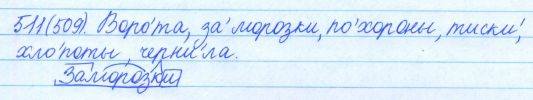 511(509). Воро'та, за'морозки, по'хороны, тиски',
хло'поты, черни'ла.
Заморозки